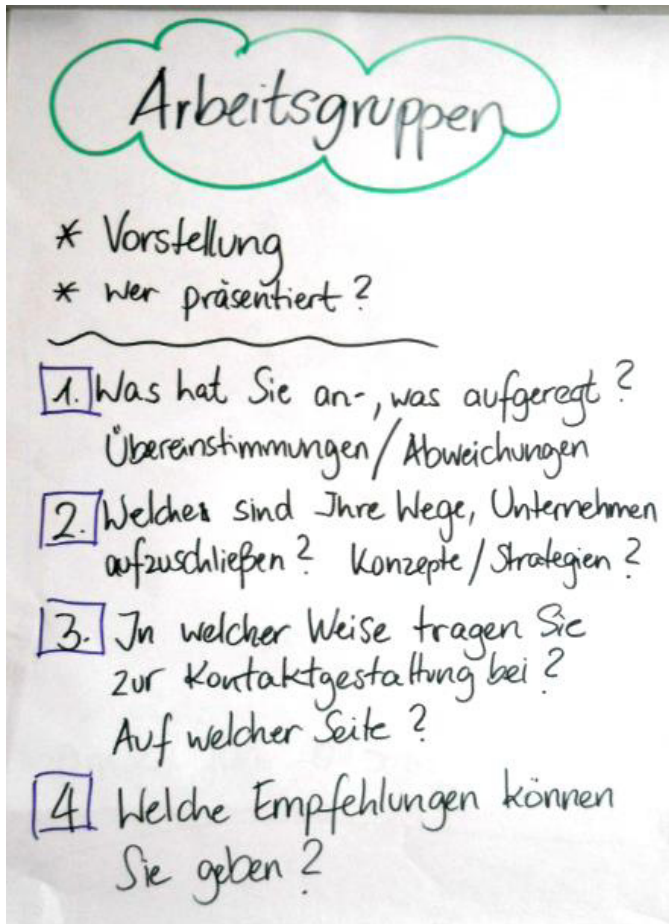 Arbeitsgruppen
* Vorstellung
* Wer präsentiert?
1. Was hat Sie an-, was aufgeregt?
Übereinstimmungen / Abweichungen
2. Welches sind Ihre Wege, Unternehmen
aufzuschließen? Konzepte / Strategien?
3. In welcher Weise tragen Sie
zur Kontaktgestaltung bei?
Auf welcher Seite?
4 Welche Empfehlungen können
Sie geben?